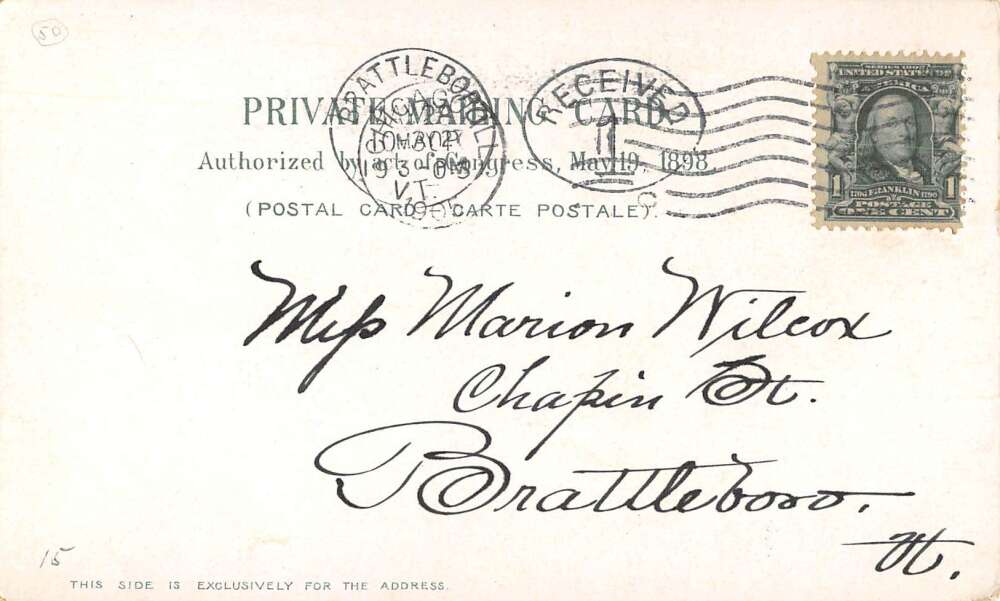 50
PRIVATE MAILING CARD
Authorized by act of Congress, May 19, 1898
(POSTAL CARD - CARTE POSTALE).
BRATTLEBORO
VT.
CHICAGO, ILL.
RECEIVED
1
UNITED STATES OF AMERICA
1706 FRANKLIN 1790
1 1
POSTAGE
ONE CENT
Miss Marion Wilcox
Chapin St.
Brattleboro.
Vt.
15
THIS SIDE IS EXCLUSIVELY FOR THE ADDRESS.